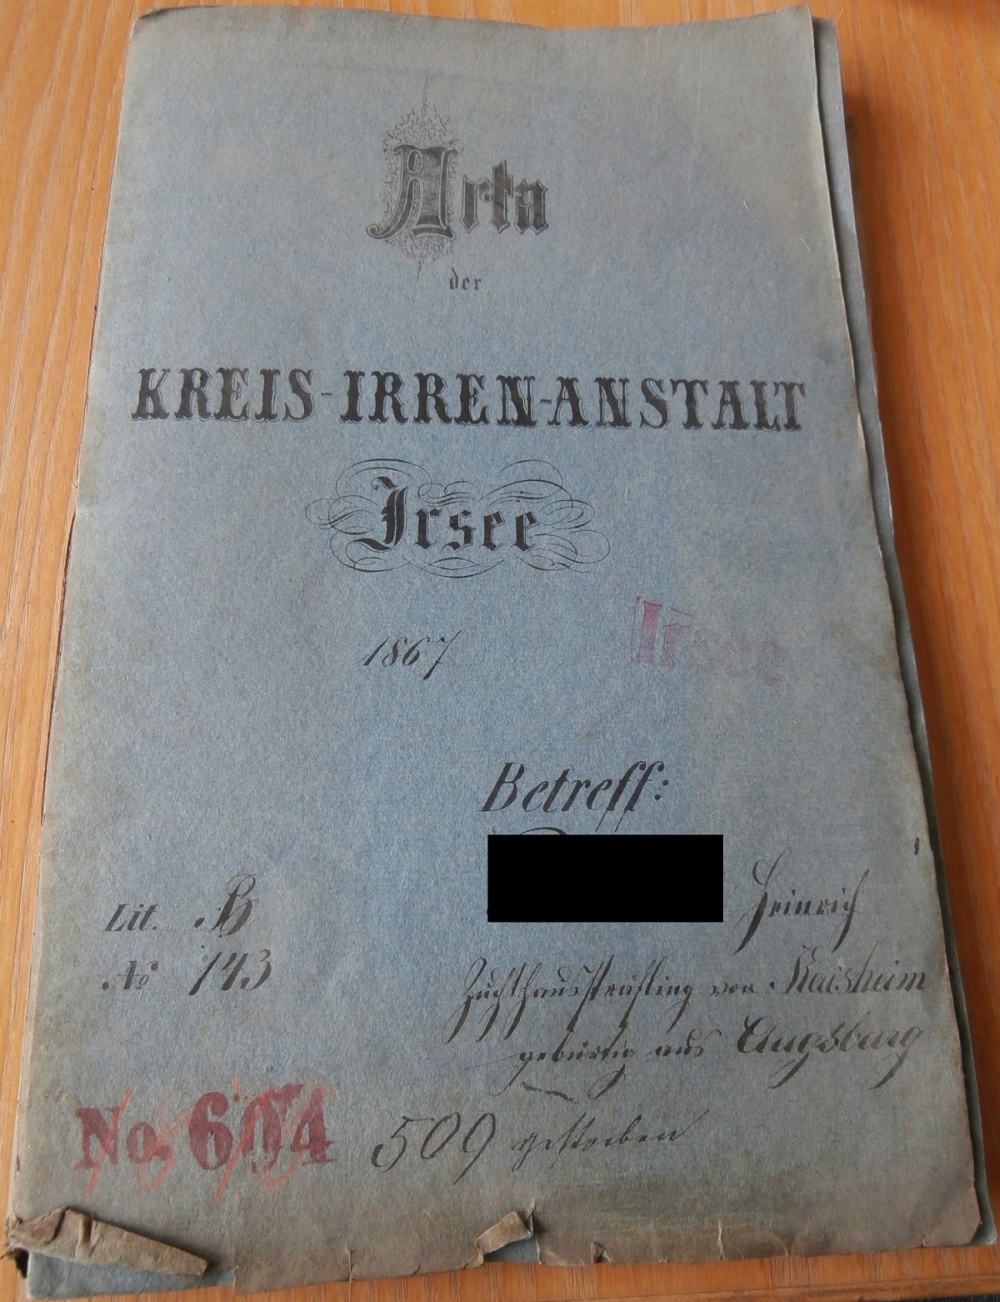 Acta
der
KREIS-IRREN-ANSTALT
Irsee
1867
Irsee
Betreff:
Heinrich
Lit. B
No 143
Zuchthaussträfling von Kaisheim
gebürtig aus Augsburg
No. 604
509 gestorben